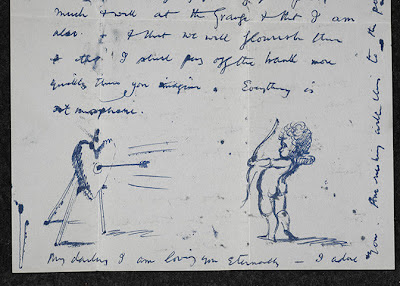 much & well at the Grange & that I am
also & that we will flourish then
& tho' I shall pay off the bank more
quickly than you imagine. Everything is
not morphine.
My darling I am loving you Eternally — I adore
you. And nothing to the